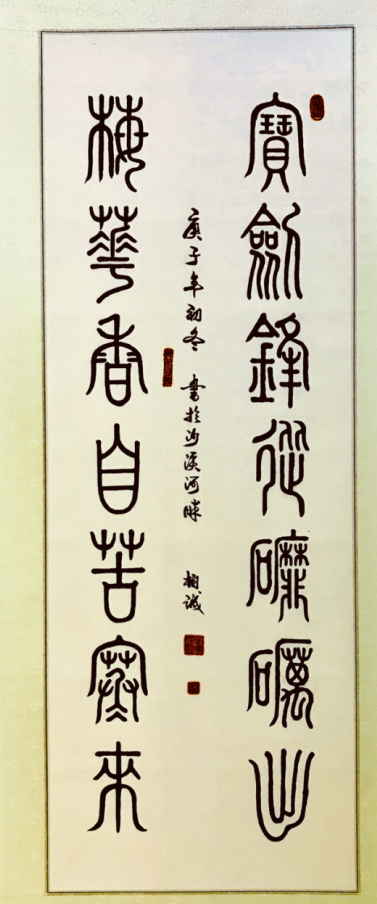 寶劍鋒從礪礪出
梅華香自苦寒來
庚子年初冬 書於沙溪河畔 楨誠